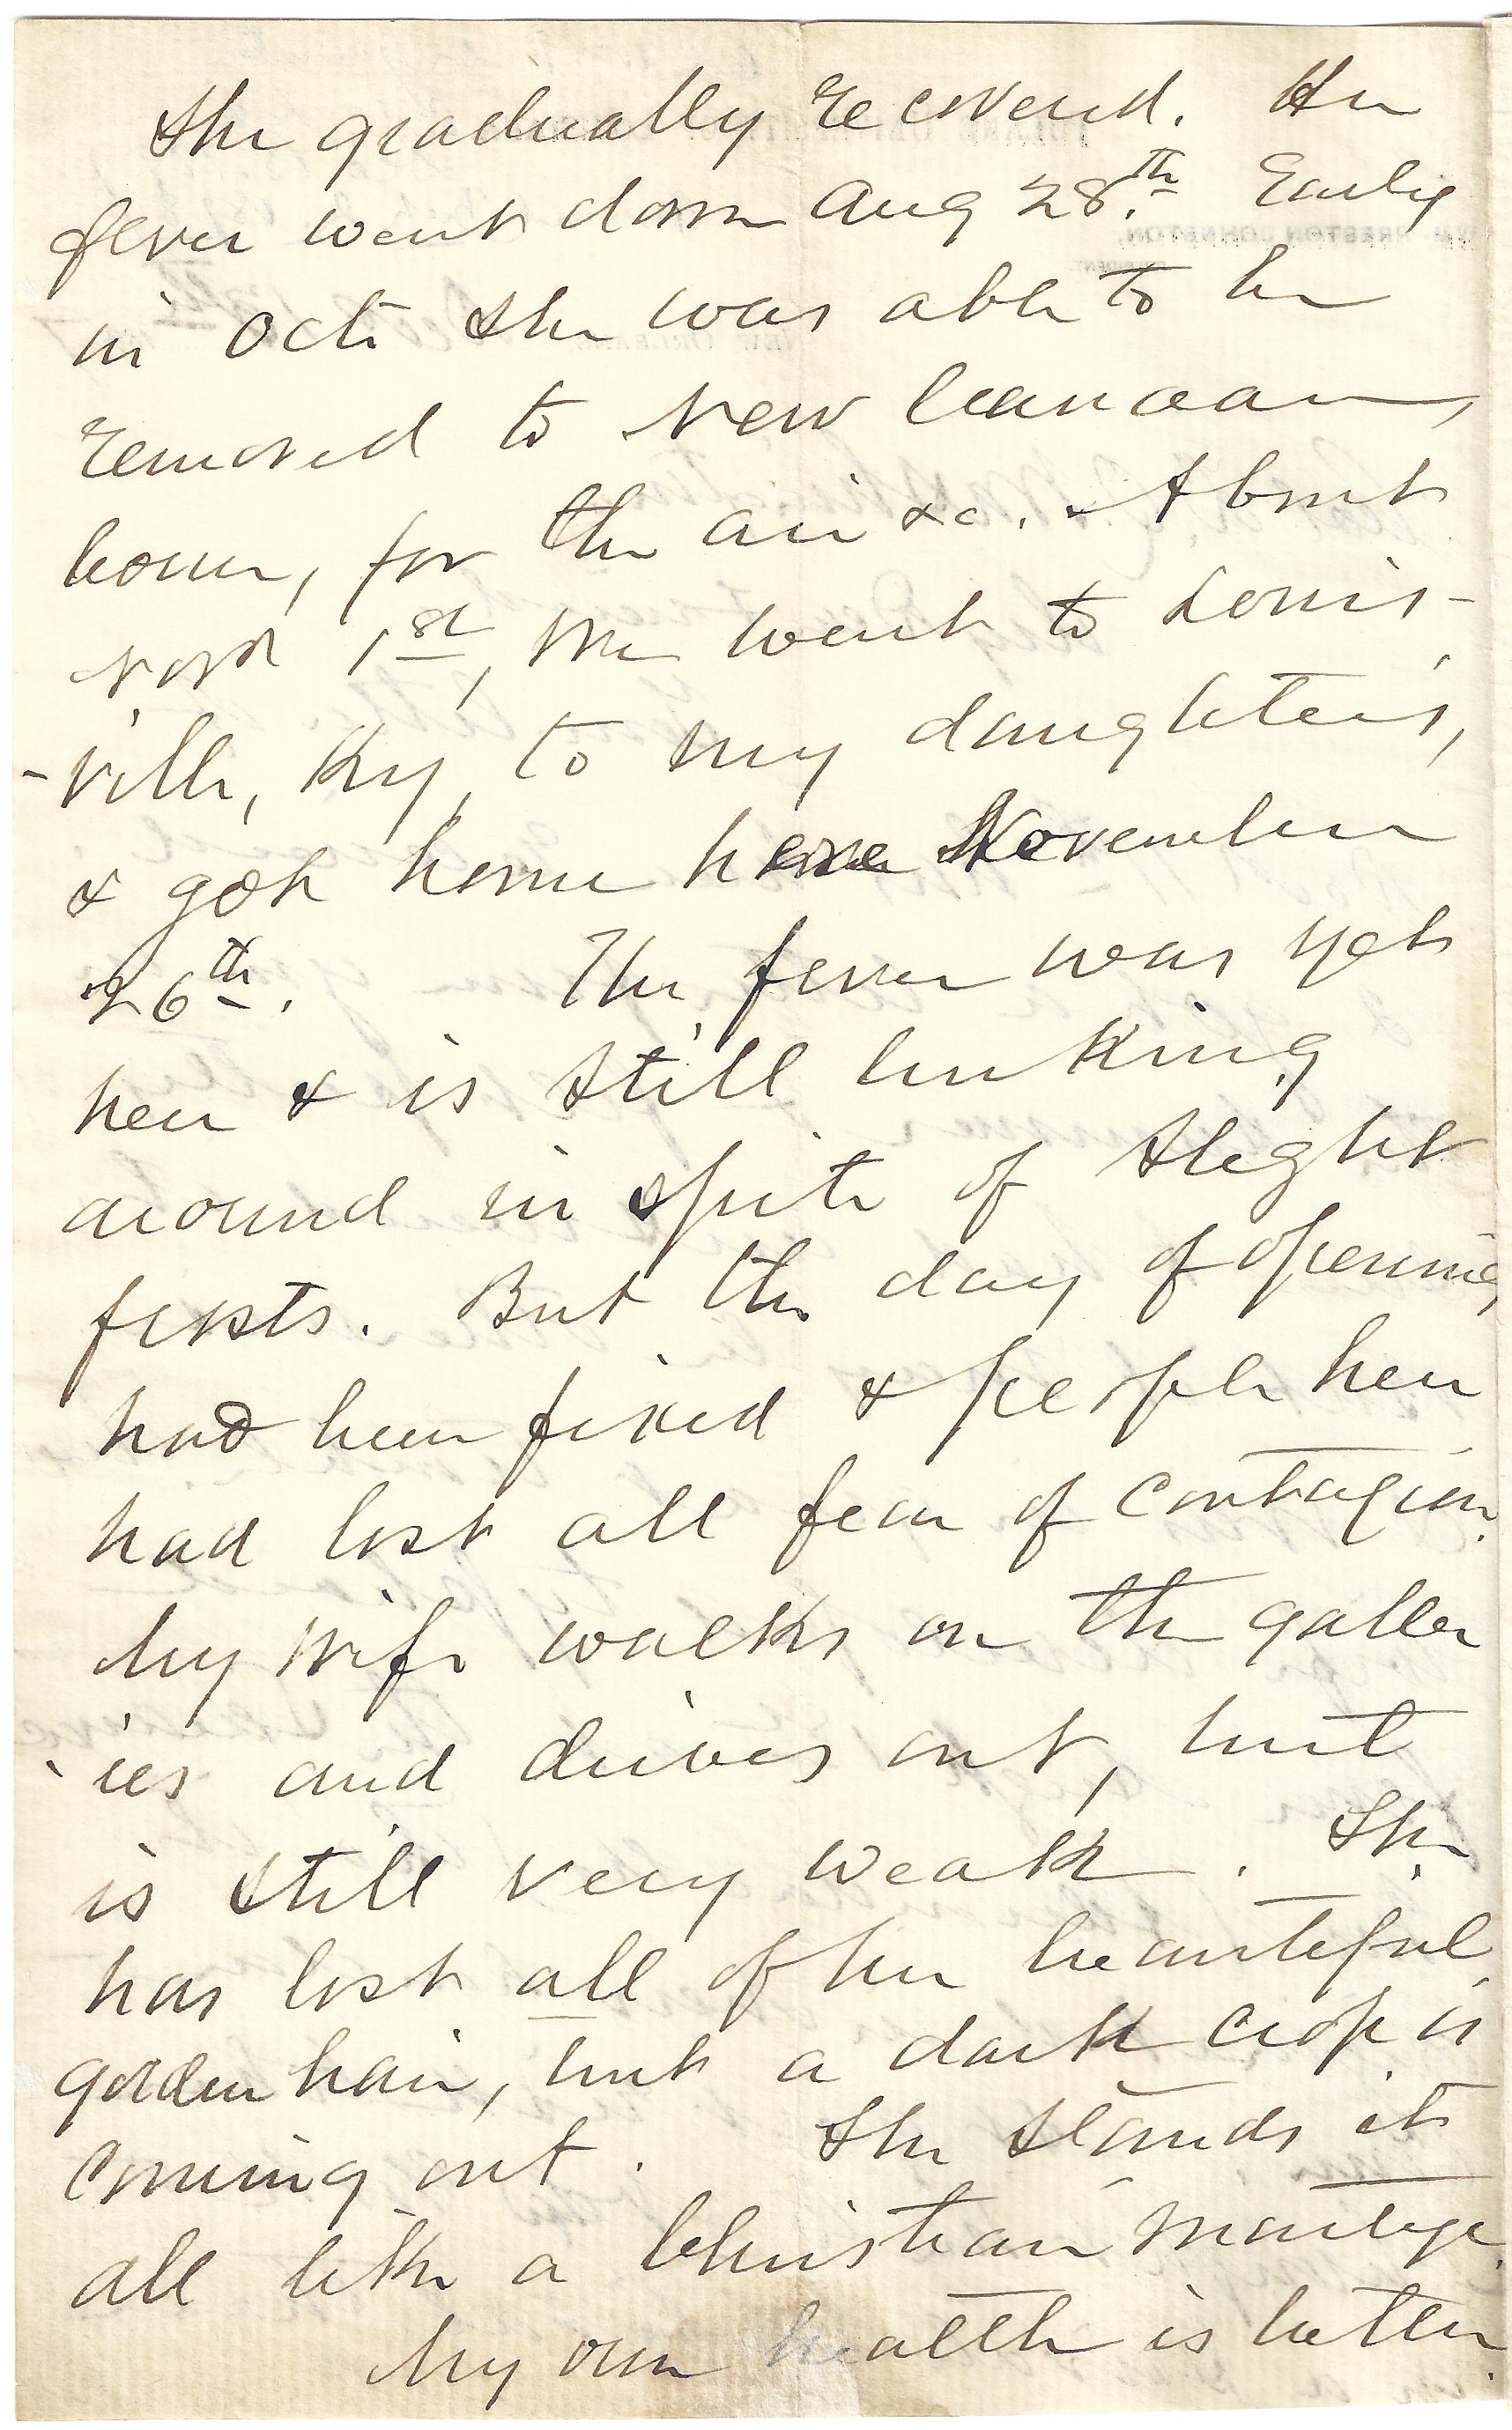 She gradually recovered. Her
fever went down Aug 28.th Early
in Oct. she was able to be
removed to New Canaan,
Conn, for the air &c. About
Novr 1st, we went to Louis-
-ville, Ky, to my daughter's,
& got home here November
26th. The fever was yet
here & is still lurking
around in spite of slight
frosts. But the day of opening
had been fixed & people here
had lost all fear of contagion.
My wife walks on the galler
-ies and drives out, but
is still very weak. She
has lost all of her beautiful
golden hair, but a dark crop is
coming out. She stands it
all like a Christian martyr.
My own health is better.